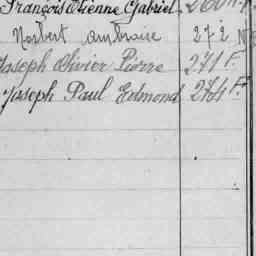 François Etienne Gabriel 260 F.
Norbert Ambroise 272 N
Joseph Olivier Pierre 271 F.
Joseph Paul Edmond 274 F.